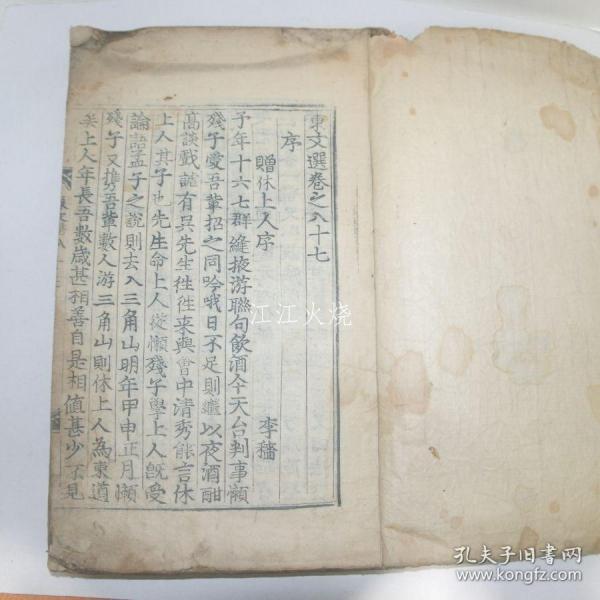 東文選卷之八十七
序
贈休上人序 李穡
予年十六七群縫掖游聯句飮酒今天台判事懶
殘子愛吾輩招之同吟哦日不足則繼以夜酒酣
高談戲謔有吳先生徃徃來與會中淸秀能言休
上人其子也先生命上人從懶殘子學上人旣受
論語孟子之說則去入三角山明年甲申正月懶
殘子又携吾輩數人游三角山則休上人為東道
矣上人年長吾數歲甚相善自是相値甚少不見
江江火烧
孔夫子旧书网
www.kongfz.com